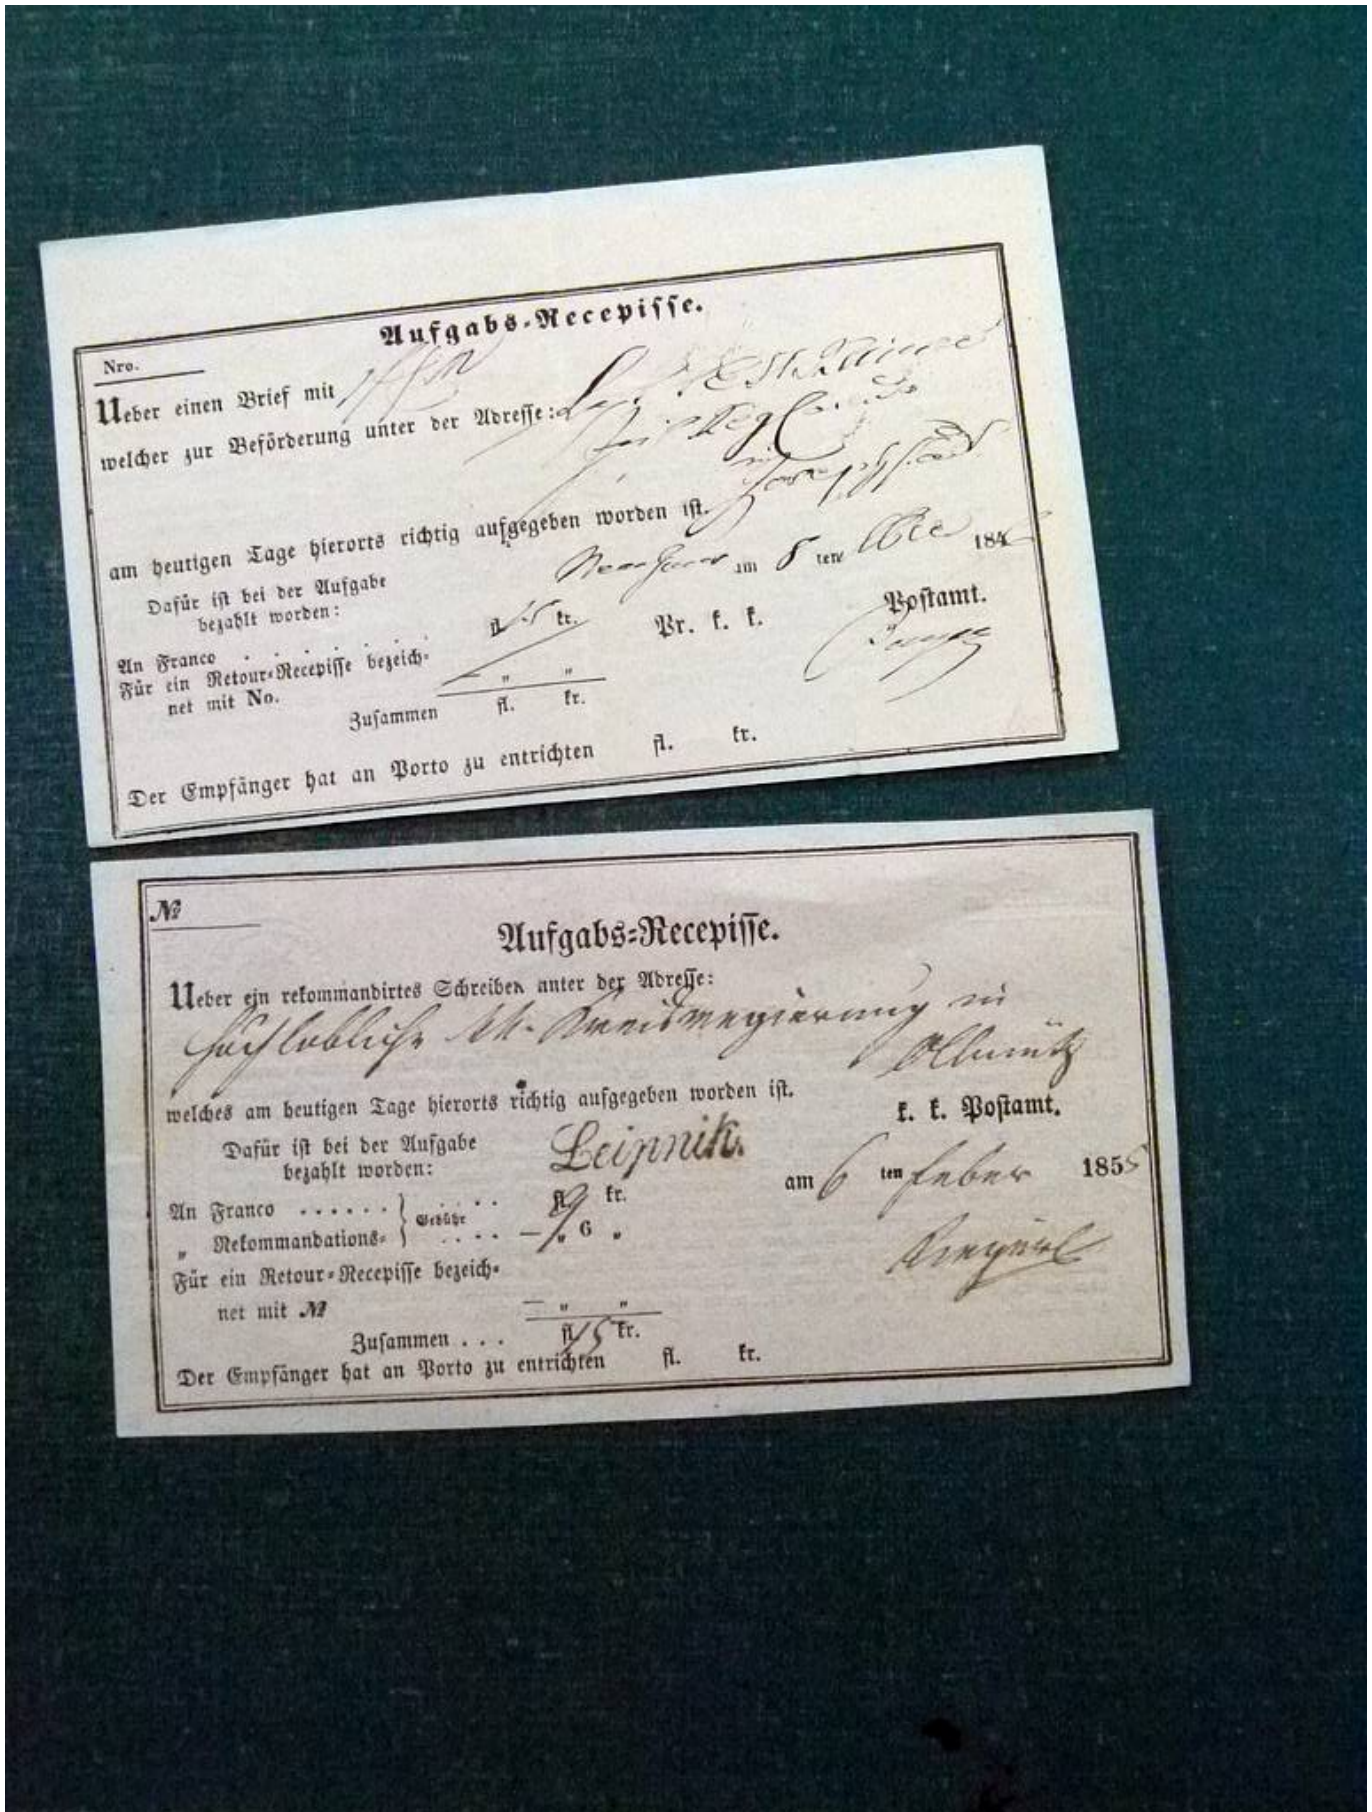 Aufgabs-Recepisse.
Nro.
Ueber einen Brief mit
welcher zur Beförderung unter der Adresse:
in
am heutigen Tage hierorts richtig aufgegeben worden ist.
am 8 ten 184
Dafür ist bei der Aufgabe
bezahlt worden:
fl. kr.
Pr. k. k. Postamt.
An Franco . . . . .
Für ein Retour-Recepisse bezeich-
net mit No. — " "
Zusammen fl. kr.
Der Empfänger hat an Porto zu entrichten fl. kr.
№
Aufgabs-Recepisse.
Ueber ein rekommandirtes Schreiben unter der Adresse:
Hochlöbliche k.k. Kreisregierung in
Ollmütz
welches am heutigen Tage hierorts richtig aufgegeben worden ist.
k. k. Postamt.
Dafür ist bei der Aufgabe
bezahlt worden:
Leipnik.
am 6 ten Feber 1855
An Franco . . . . . . . . . . fl. 9 kr.
" Rekommandations- Gebühr . . . . — " 6 "
Für ein Retour-Recepisse bezeich-
net mit № — " "
Zusammen . . . fl. 15 kr.
Der Empfänger hat an Porto zu entrichten fl. kr.